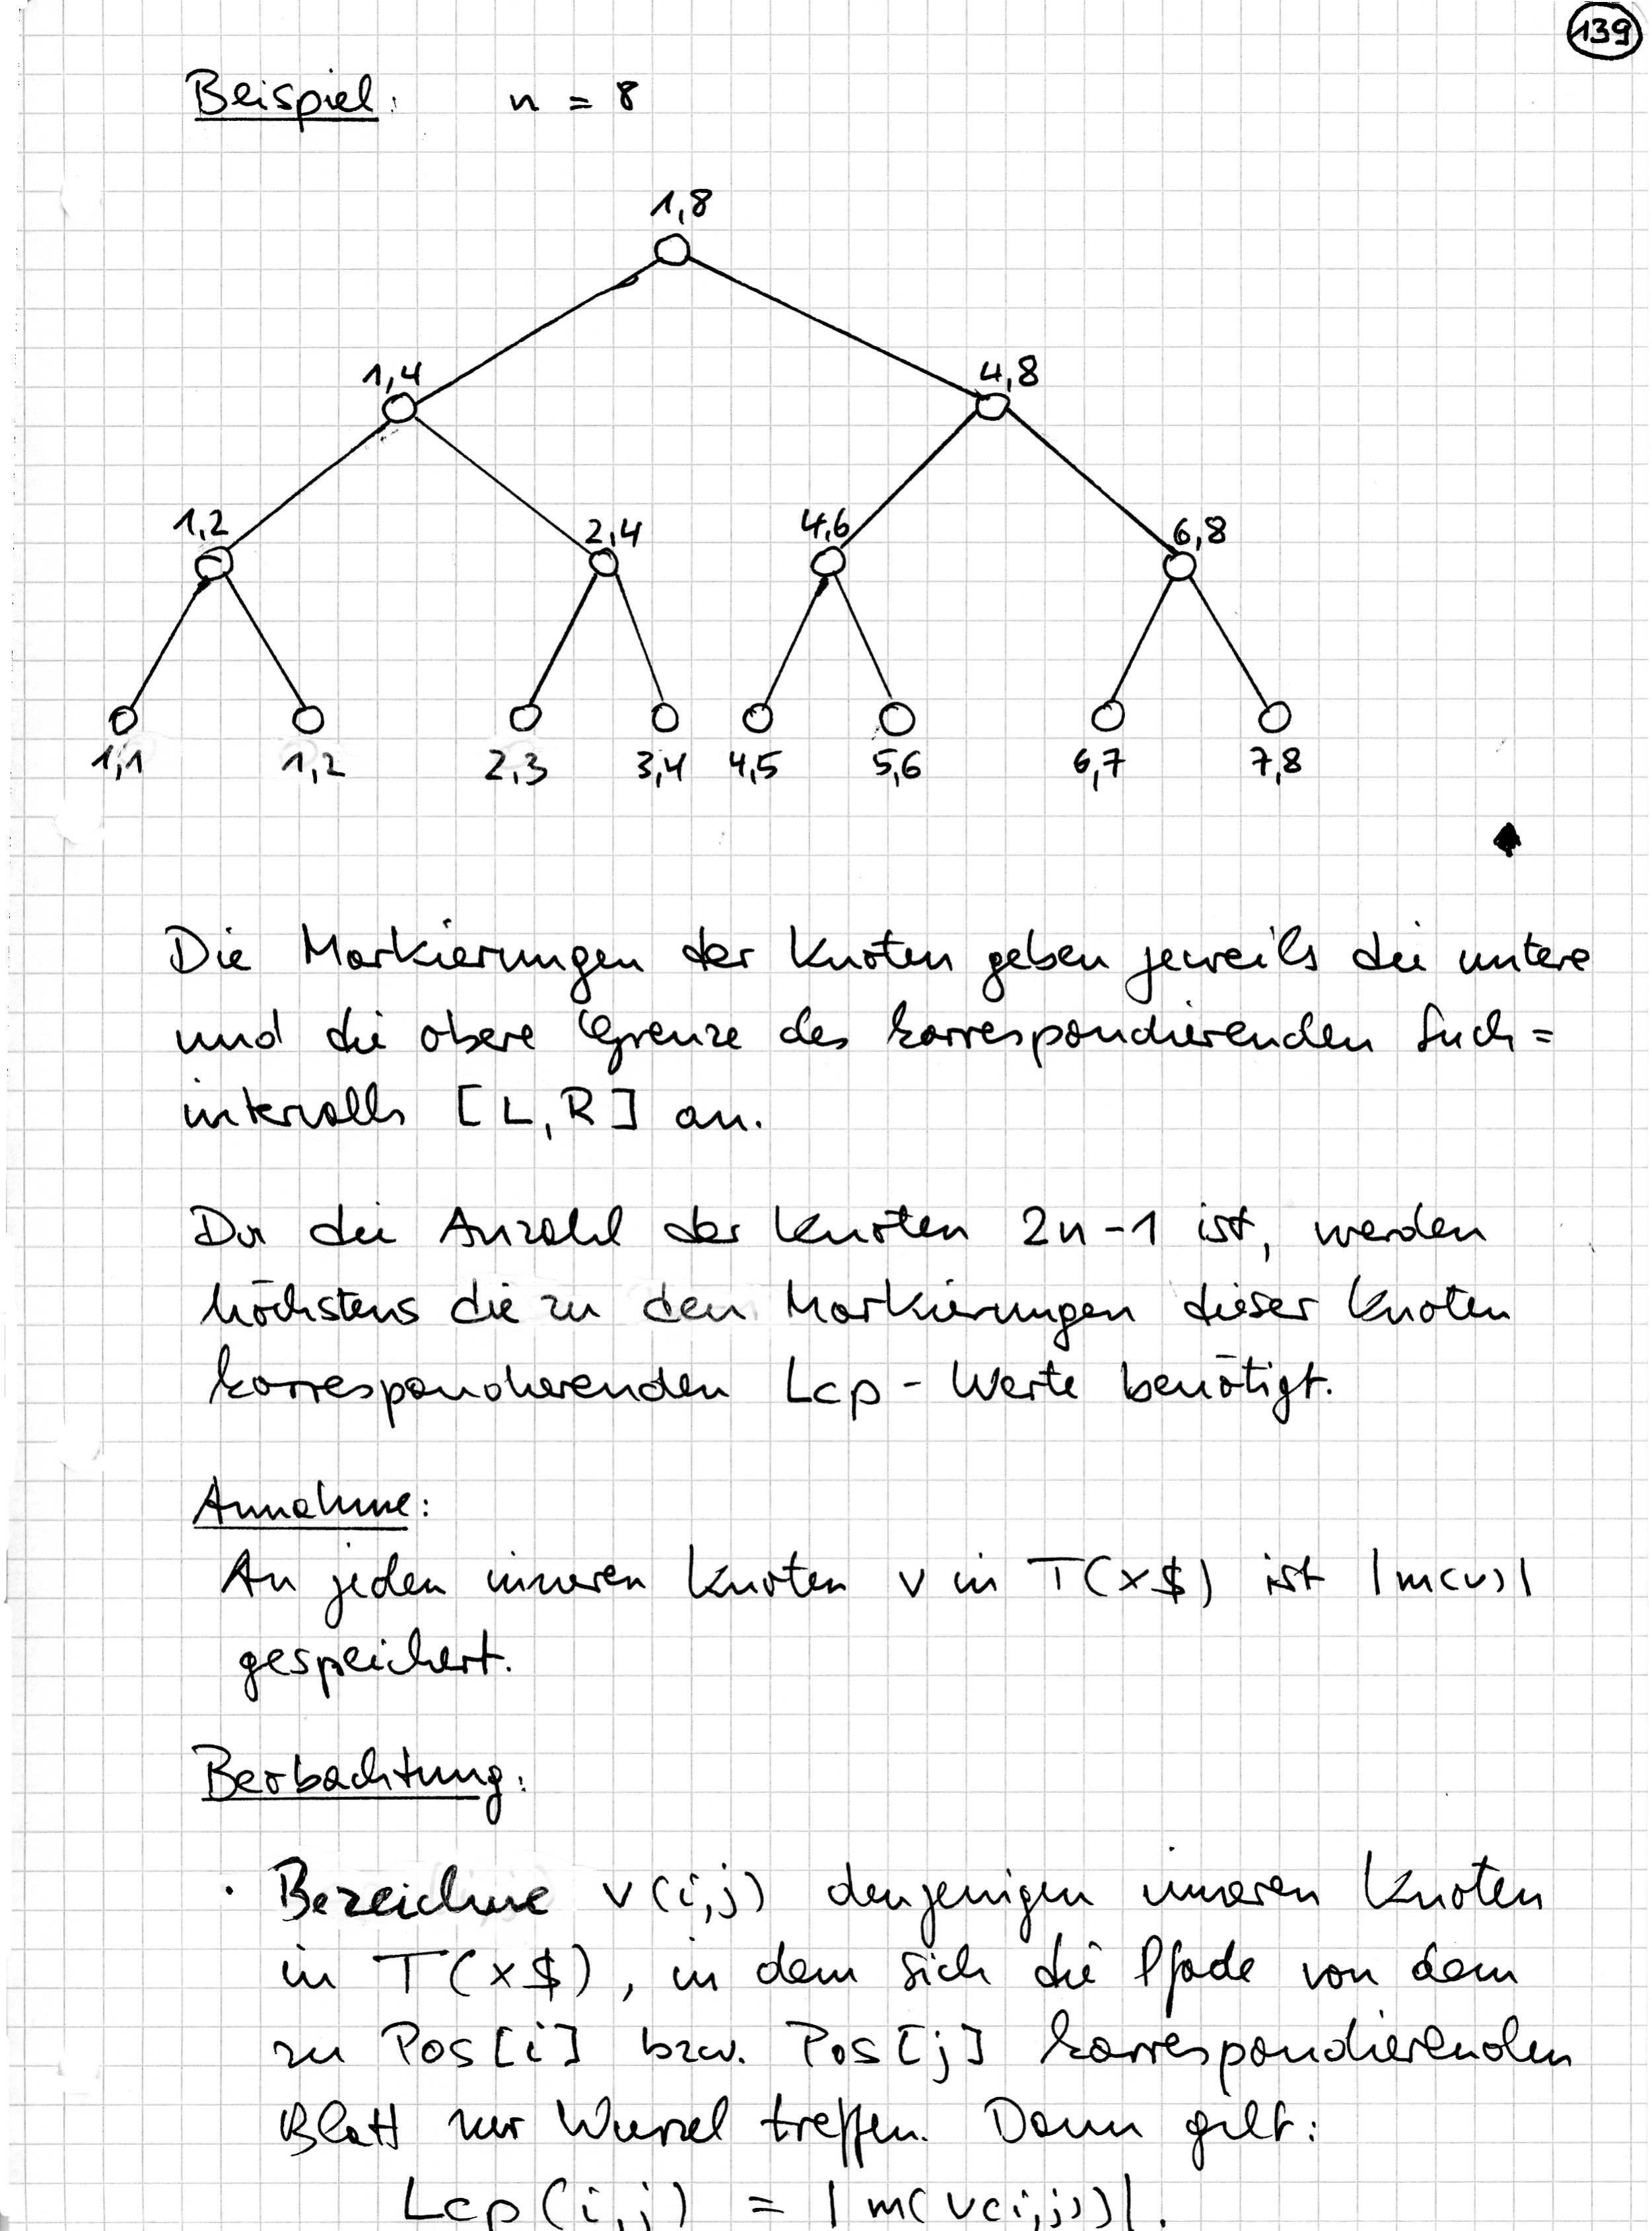 139
Beispiel: n = 8
1,8
1,4 4,8
1,2 2,4 4,6 6,8
1,1 1,2 2,3 3,4 4,5 5,6 6,7 7,8
Die Markierungen der Knoten geben jeweils die untere
und die obere Grenze des korrespondierenden Such=
intervalls [L,R] an.
Da die Anzahl der Knoten 2n-1 ist, werden
höchstens die zu den Markierungen dieser Knoten
korrespondierenden Lcp-Werte benötigt.
Annahme:
An jeden inneren Knoten v in T(x$) ist |m(v)|
gespeichert.
Beobachtung:
· Bezeichne v(i,j) denjenigen inneren Knoten
in T(x$), in dem sich die Pfade von dem
zu Pos[i] bzw. Pos[j] korrespondierenden
Blatt zur Wurzel treffen. Dann gilt:
Lcp(i,j) = |m(v(i,j))|.